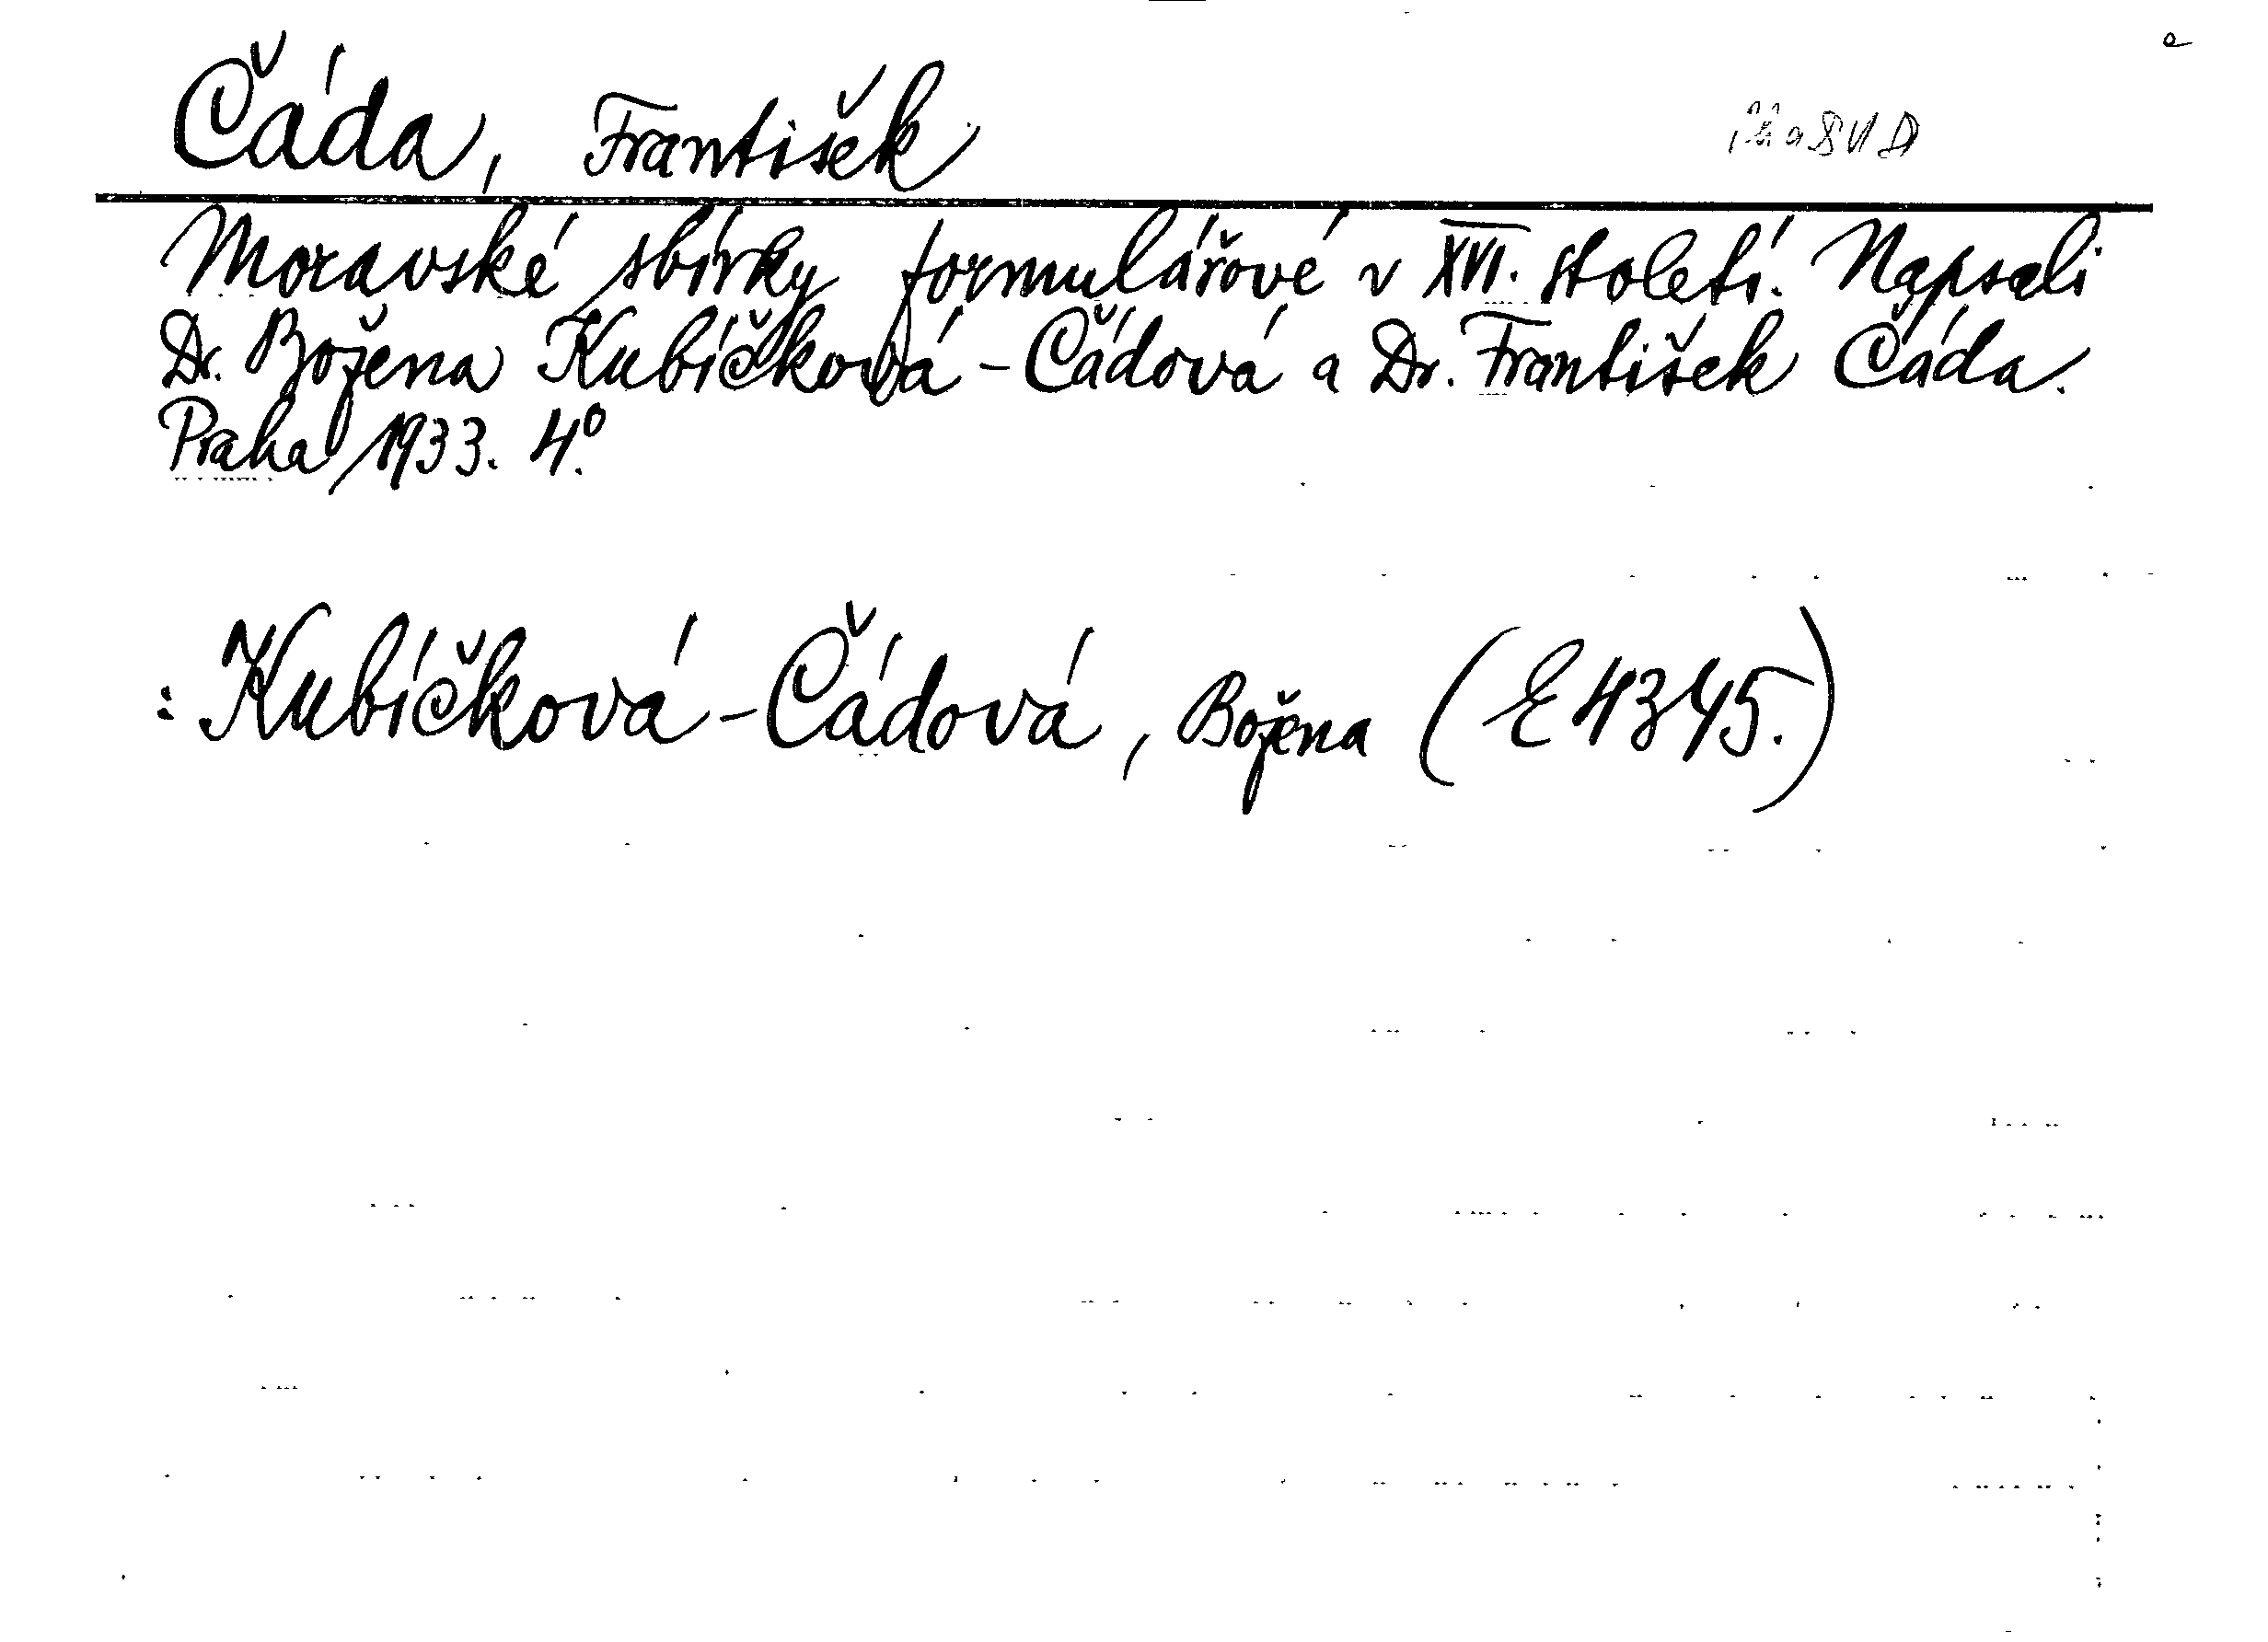 Čáda, František
Moravské sbírky formulářové v XVI. století. Napsali
Dr. Božena Kubíčková-Čádová a Dr. František Čáda.
Praha 1933. 4°.
: Kubíčková-Čádová, Božena (E 4345.)